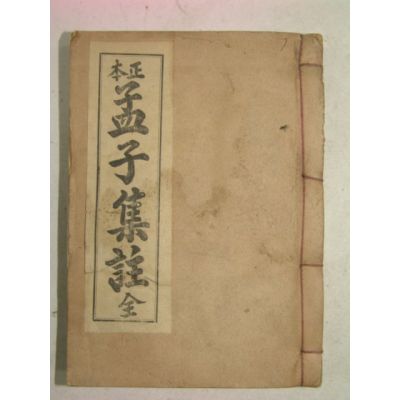 正本
孟子集註 全